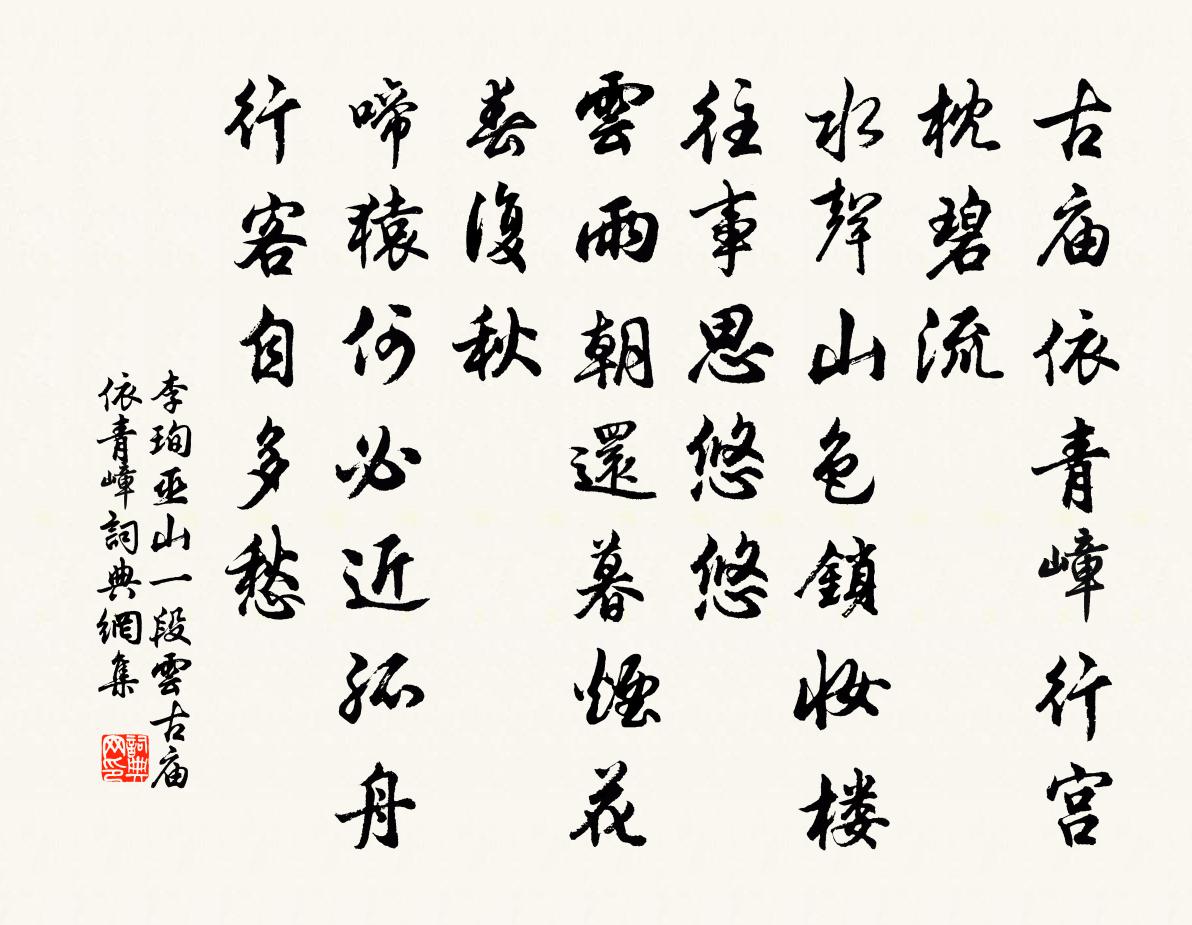 古庙依青嶂行宫
枕碧流
水聲山色鎖妆楼
往事思悠悠
雲雨朝還暮煙花
春復秋
啼猿何必近孤舟
行客自多愁
李珣巫山一段雲古庙
依青嶂詞典網集
詞典网印